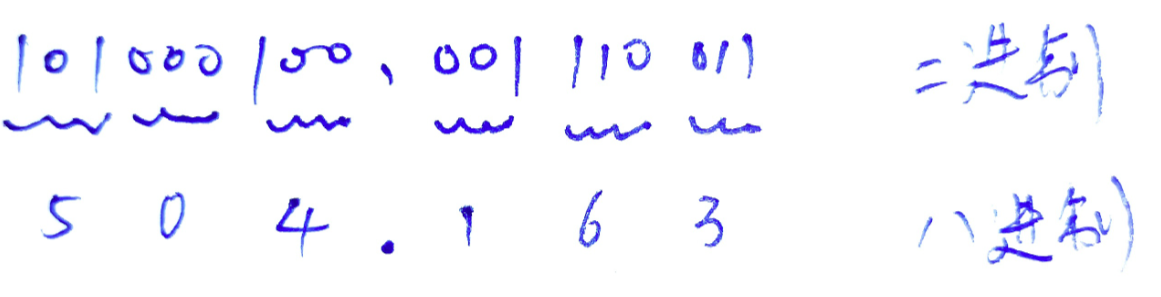 101 000 100 . 001 110 011 二进制
5 0 4 . 1 6 3 八进制